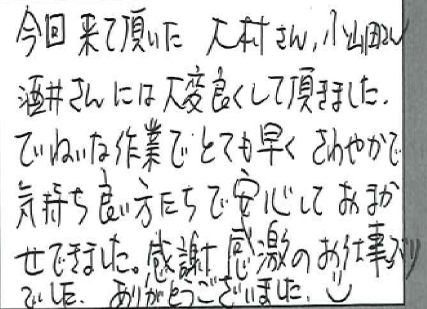 今回来て頂いた 大村さん,小山田さん
酒井さんには大変良くして頂きました.
ていねいな作業でとても早く さわやかで
気持ち良い方たちで安心しておまか
せできました。感謝感激のお仕事ぶり
でした. ありがとうございました.